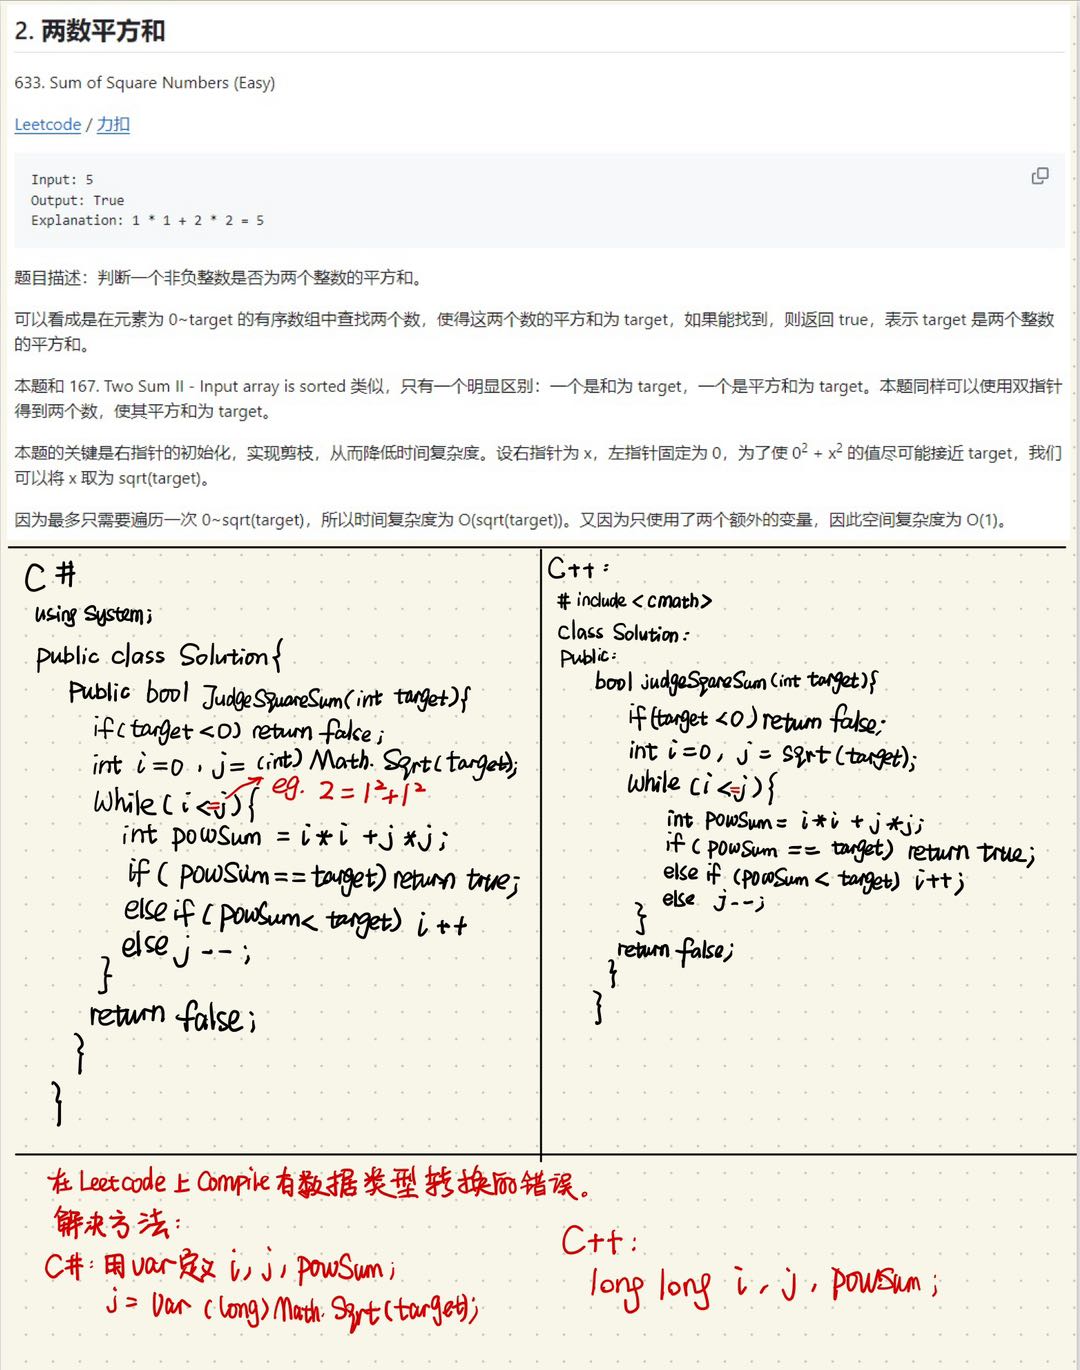 2. 两数平方和
633. Sum of Square Numbers (Easy)
Leetcode / 力扣
Input: 5
Output: True
Explanation: 1 * 1 + 2 * 2 = 5
题目描述：判断一个非负整数是否为两个整数的平方和。
可以看成是在元素为 0~target 的有序数组中查找两个数，使得这两个数的平方和为 target，如果能找到，则返回 true，表示 target 是两个整数
的平方和。
本题和 167. Two Sum II - Input array is sorted 类似，只有一个明显区别：一个是和为 target，一个是平方和为 target。本题同样可以使用双指针
得到两个数，使其平方和为 target。
本题的关键是右指针的初始化，实现剪枝，从而降低时间复杂度。设右指针为 x，左指针固定为 0，为了使 0² + x² 的值尽可能接近 target，我们
可以将 x 取为 sqrt(target)。
因为最多只需要遍历一次 0~sqrt(target)，所以时间复杂度为 O(sqrt(target))。又因为只使用了两个额外的变量，因此空间复杂度为 O(1)。
C#
using System;
public class Solution{
Public bool JudgeSquareSum(int target){
if(target <0) return false;
int i=0, j= (int) Math.Sqrt(target);
While( i<=j){
eg. 2 = 1²+1²
int powSum = i*i +j*j;
if( powSum==target) return true;
else if( powSum< target) i ++
else j --;
}
return false;
}
}
C++:
# include <cmath>
Class Solution:
Public:
bool judgeSqareSum(int target){
if(target <0) return false;
int i=0, j= sqrt(target);
While (i<=j){
int powSum= i*i + j*j;
if( powSum == target) return true;
else if (powSum < target) i++;
else j--;
}
return false;
}
}
在Leetcode上Compile有数据类型转换的错误。
解决方法:
C#: 用var定义 i, j, powSum;
j= Var (long)Math.Sqrt(target);
C++:
long long i, j, powSum;